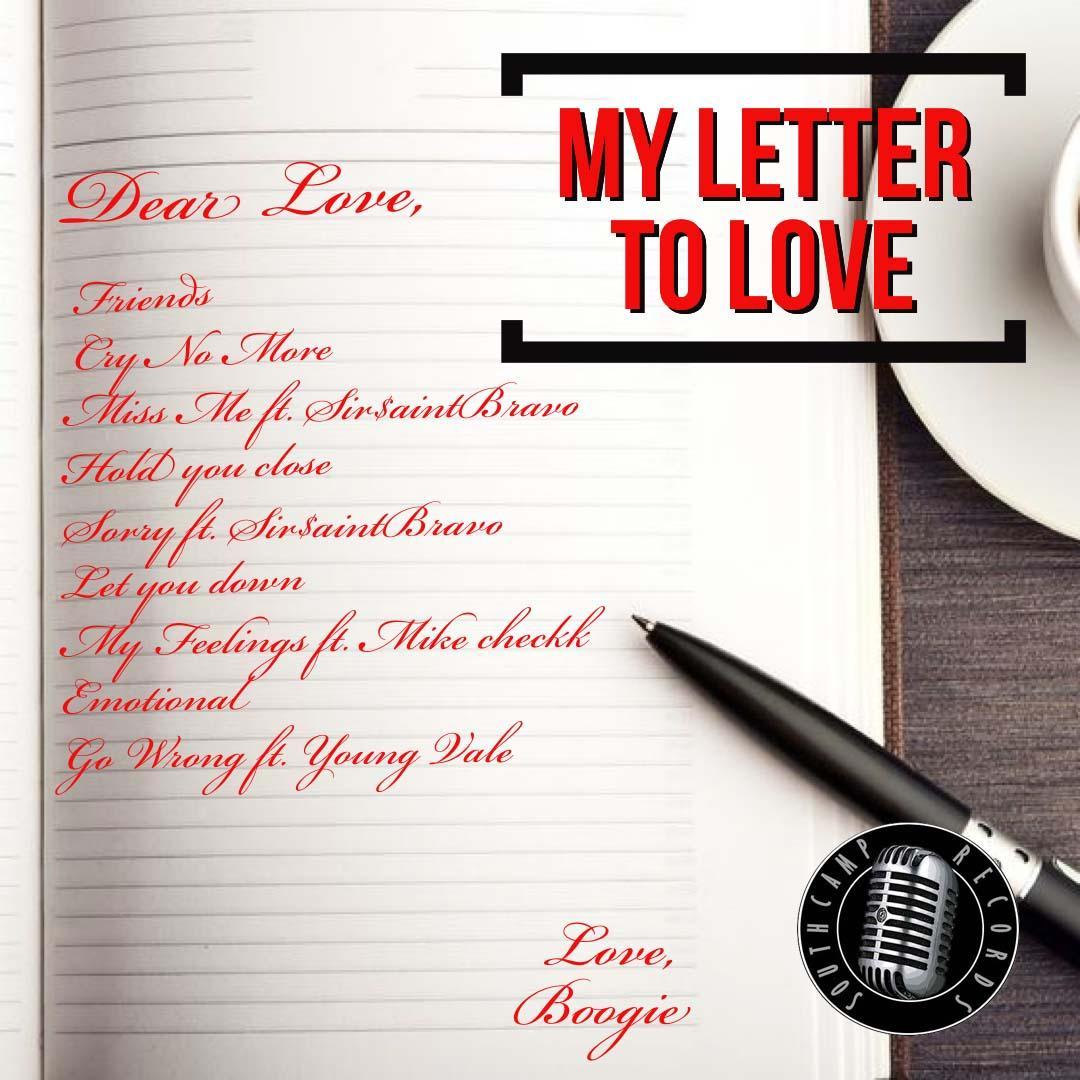 MY LETTER
TO LOVE
Dear Love,
Friends
Cry No More
Miss Me ft. Sir$aintBravo
Hold you close
Sorry ft. Sir$aintBravo
Let you down
My Feelings ft. Mike checkk
Emotional
Go Wrong ft. Young Vale
Love,
Boogie
SOUTHCAMP RECORDS